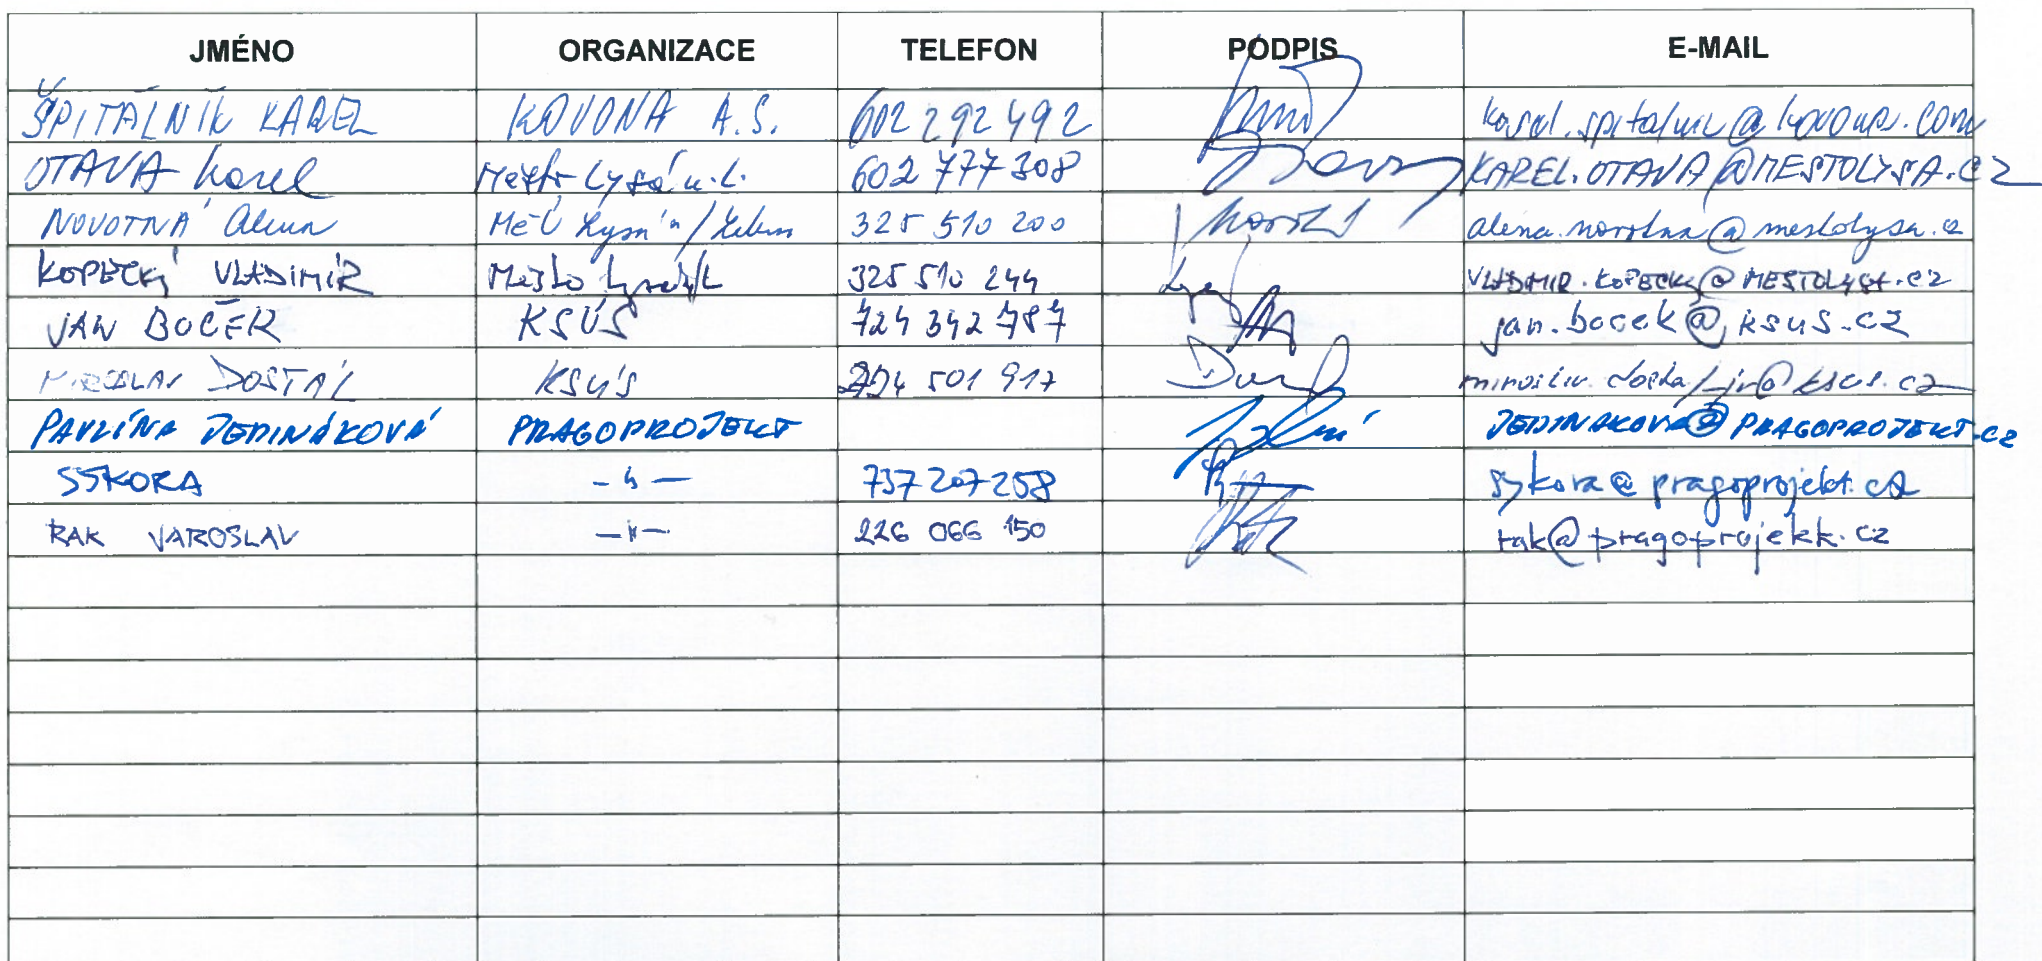 JMÉNO ORGANIZACE TELEFON PODPIS E-MAIL
ŠPITÁLNÍK KAREL KOVONA A.S. 602 292 492 karel.spitalnik@kovona.com
OTAVA Karel Město Lysá n.L. 602 777 308 KAREL.OTAVA@MESTOLYSA.CZ
NOVOTNÁ Alena MěÚ Lysá n/Labem 325 510 200 alena.novotna@mestolysa.cz
KOPECKÝ VLADIMÍR Město Lysá n/L 325 510 244 VLADIMIR.KOPECKY@MESTOLYSA.CZ
JAN BOČEK KSÚS 724 342 787 jan.bocek@ksus.cz
MIROSLAV DOSTÁL KSÚS 724 501 917 @ksus.cz
PAVLÍNA JEDINÁKOVÁ PRAGOPROJEKT JEDINAKOVA@PRAGOPROJEKT.CZ
SÝKORA -"- 737 207 258 sykora@pragoprojekt.cz
RAK JAROSLAV -"- 226 066 150 rak@pragoprojekt.cz